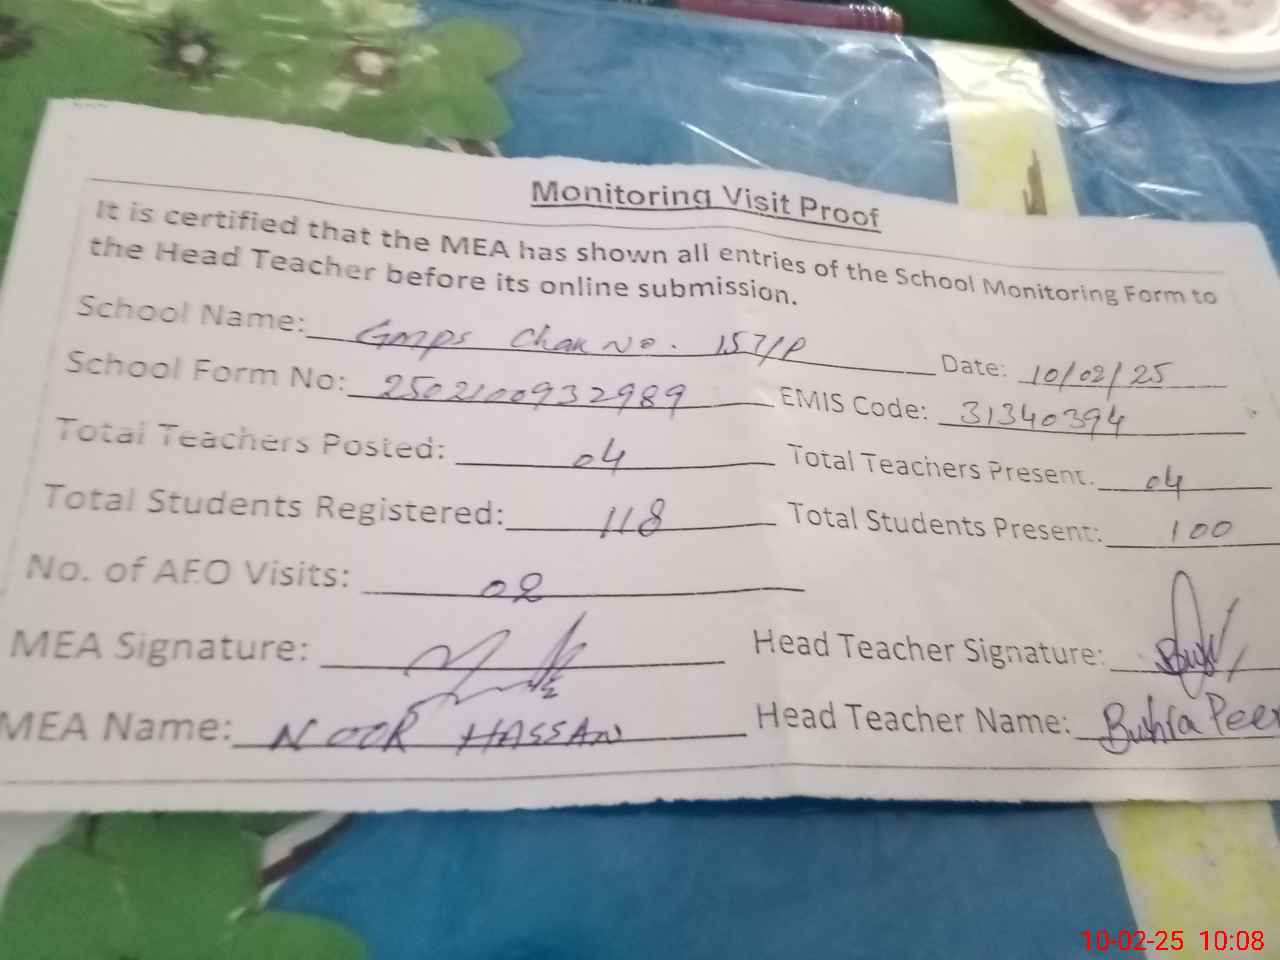 Monitoring Visit Proof
It is certified that the MEA has shown all entries of the School Monitoring Form to
the Head Teacher before its online submission.
School Name: Gmps Chak No. 157/P Date: 10/02/25
School Form No: 2502100932989 EMIS Code: 31340394
Total Teachers Posted: 04 Total Teachers Present: 04
Total Students Registered: 118 Total Students Present: 100
No. of AEO Visits: 02
MEA Signature: Head Teacher Signature:
MEA Name: NOOR HASSAN Head Teacher Name: Bushra
10-02-25 10:08